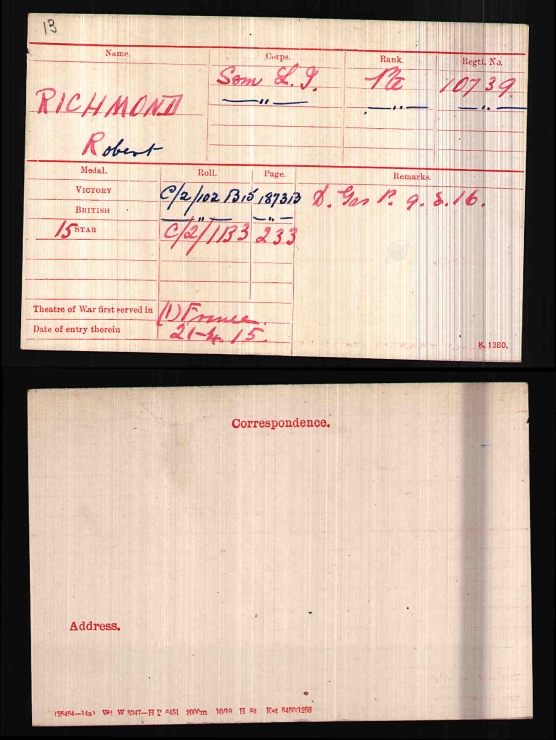 13
Name. Corps. Rank. Regtl. No.
RICHMOND Som L.I. Pte 10739.
—〃— —〃— —〃—
Robert
Medal. Roll. Page. Remarks.
VICTORY C/2/102 B15 18731B D. Gas P. 9.8.16.
BRITISH —〃— —〃—
15 STAR C/2/1B3 233
Theatre of War first served in (1) France.
Date of entry therein 21-4.15.
K. 1380.
Correspondence.
Address.
Wt W 5347—H P 2000m 10/19 H St